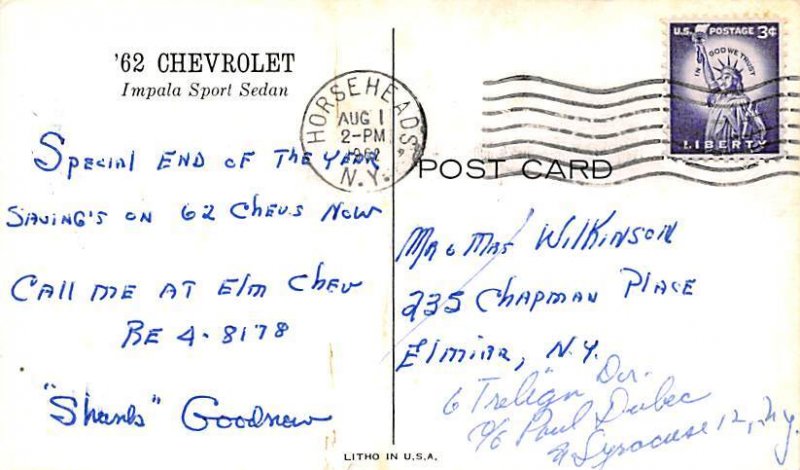 '62 CHEVROLET
Impala Sport Sedan
SPECIAL END OF THE YEAR
SAVING'S ON 62 CHEVS NOW
CALL ME AT ELM CHEV
RE 4-8178
"Shanks" Goodnow
LITHO IN U.S.A.
HORSEHEADS,
AUG 1
2-PM
1962
N.Y.
U.S. POSTAGE 3¢
IN GOD WE TRUST
LIBERTY
POST CARD
MR & MRS WILKINSON
235 CHAPMAN PLACE
ELMIRA, N.Y.
6 Dr.
% Paul Dubec
Syracuse 12, N.Y.